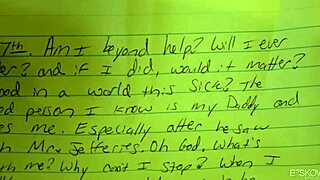 7th. Am I beyond help? Will I ever
er? and if I did, would it matter?
od in a world this sick? The
od person I know is my Daddy and
es me. Especially after he saw
h Mrs. Jefferies. Oh God, what's
th me? Why can't I stop? When I